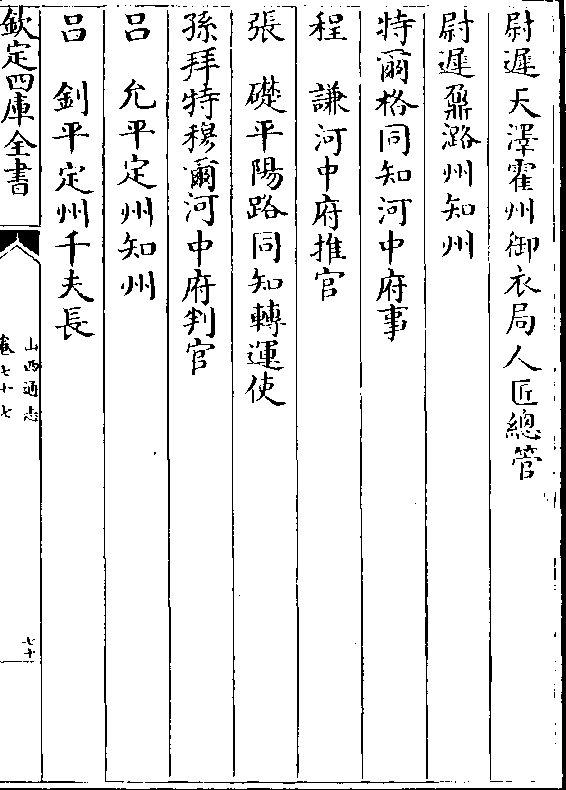 尉遲天澤霍州御衣局人匠總管
尉遲鼐潞州知州
特爾格同知河中府事
程　謙河中府推官
張　礎平陽路同知轉運使
孫拜特穆爾河中府判官
呂　允平定州知州
呂　釗平定州千夫長
欽定四庫全書
山西通志
卷七十七
七十